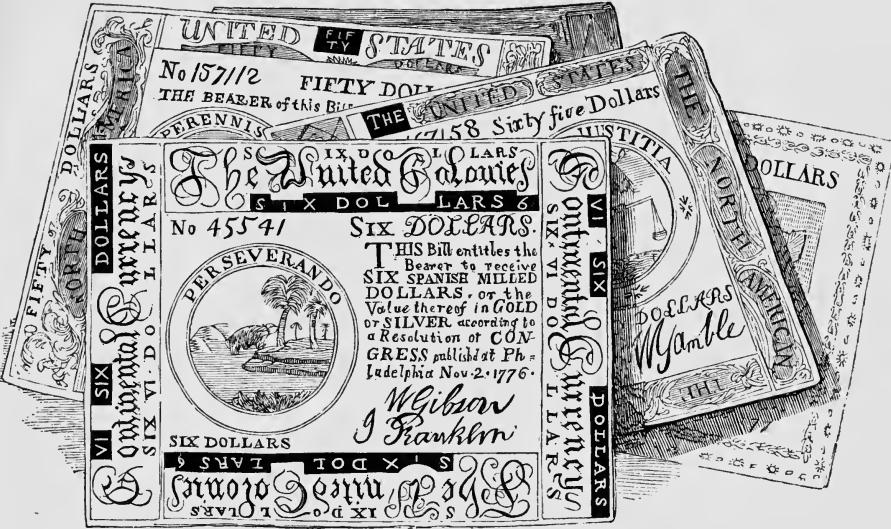 UNITED FIF TY STATES
FIFTY DOLLARS
No 157112 FIFTY DOLL
THE BEARER of this Bill
PERENNIS
DOLLARS
AMERICA
FIFTY
NORTH
THE UNITED STATES
67158 Sixty five Dollars
JUSTITIA
THE NORTH AMERICAN
DOLLARS
WGamble
THE
DOLLARS
SIX DOLLARS
The United Colonies
SIX DOLLARS 6
No 45541 SIX DOLLARS.
PERSEVERANDO
THIS Bill entitles the
Bearer to receive
SIX SPANISH MILLED
DOLLARS, or the
Value thereof in GOLD
or SILVER according to
a Resolution of CON-
GRESS published at Ph=
ladelphia Nov. 2. 1776.
WGibson
J Franklin
SIX DOLLARS
VI SIX DOLLARS
Continental Currency
SIX VI DOLLARS
VI SIX DOLLARS
Continental Currency
SIX VI DOLLARS
SIX DOLLARS 6
The United Colonies
SIX DOLLARS